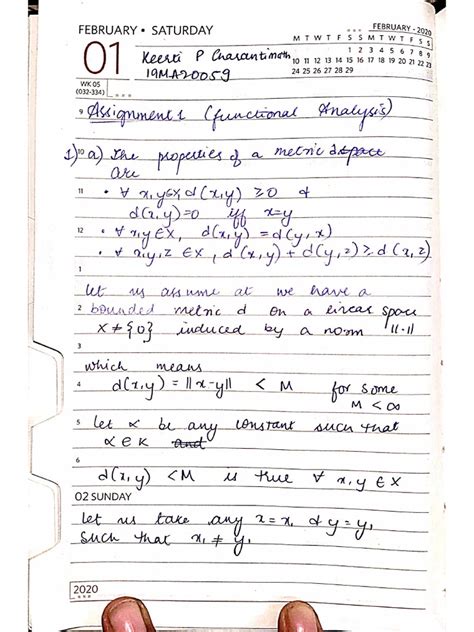 FEBRUARY • SATURDAY
01
WK 05
(032-334)
Keerti P Charantimath
19MA20059
FEBRUARY - 2020
M T W T F S S M T W T F S S
1 2 3 4 5 6 7 8 9
10 11 12 13 14 15 16 17 18 19 20 21 22 23
24 25 26 27 28 29
9 Assignment 1 (functional Analysis)
1) 10 a) The properties of a metric space
are
11 • ∀ x,y∈X, d(x,y) ≥0 &
d(x,y)=0 iff x=y
12 • ∀ x,y∈X, d(x,y) = d(y,x)
• ∀ x,y,z ∈X, d(x,y) + d(y,z) ≥ d(x,z)
1
Let us assume at we have a
2 bounded metric d on a linear space
X≠{0} induced by a norm ||·||
3
which means
4 d(x,y) = ||x-y|| < M for some
M < ∞
5 Let α be any constant such that
α ∈ K and
6
d(x,y) <M is true ∀ x,y ∈ X
02 SUNDAY
Let us take any x = x₁ & y = y₁
such that x₁ ≠ y₁
2020